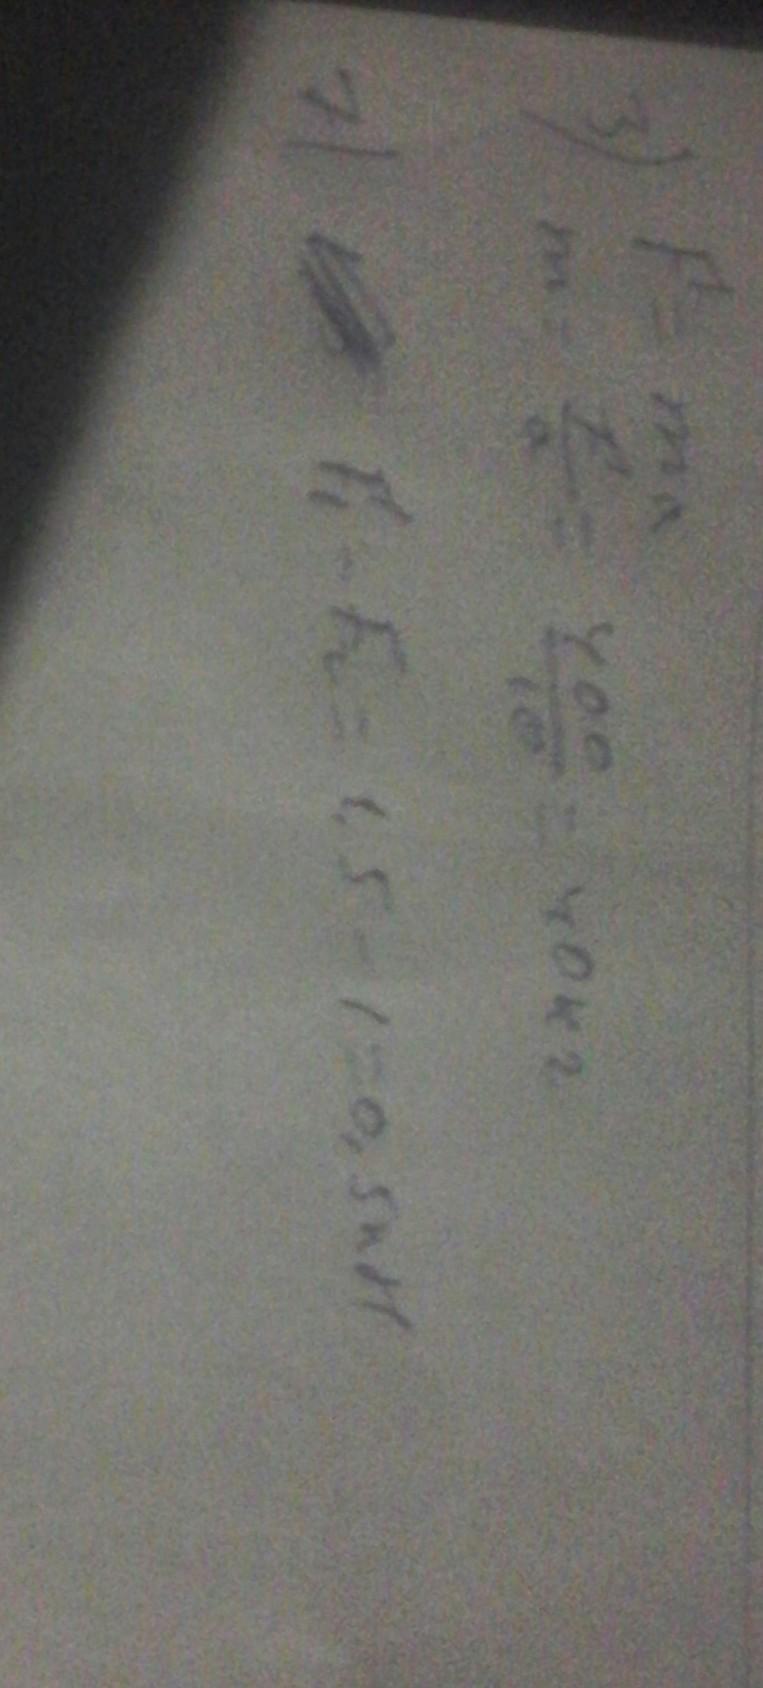 3) F = ma
m = F/a = 400/10 = 40 кг
7) F₁ - F₂ = 1,5 - 1 = 0,5 кН